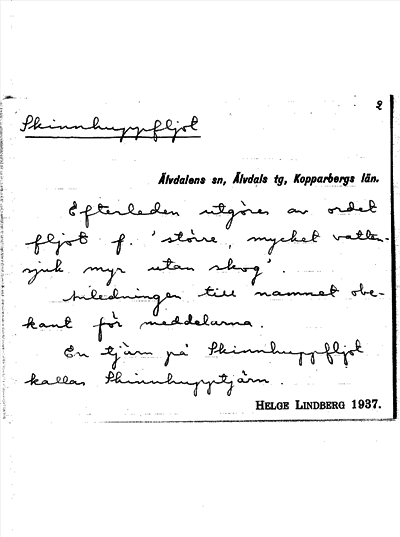 2
Skinnhuppfljot
Älvdalens sn, Älvdals tg, Kopparbergs län.
Efterleden utgöres av ordet
fljot f. 'större, mycket vatten-
sjuk myr utan skog'.
Anledningen till namnet obe-
kant för meddelarna.
En tjärn på Skinnhuppfljot
kallas Skinnhupptjärn.
HELGE LINDBERG 1937.